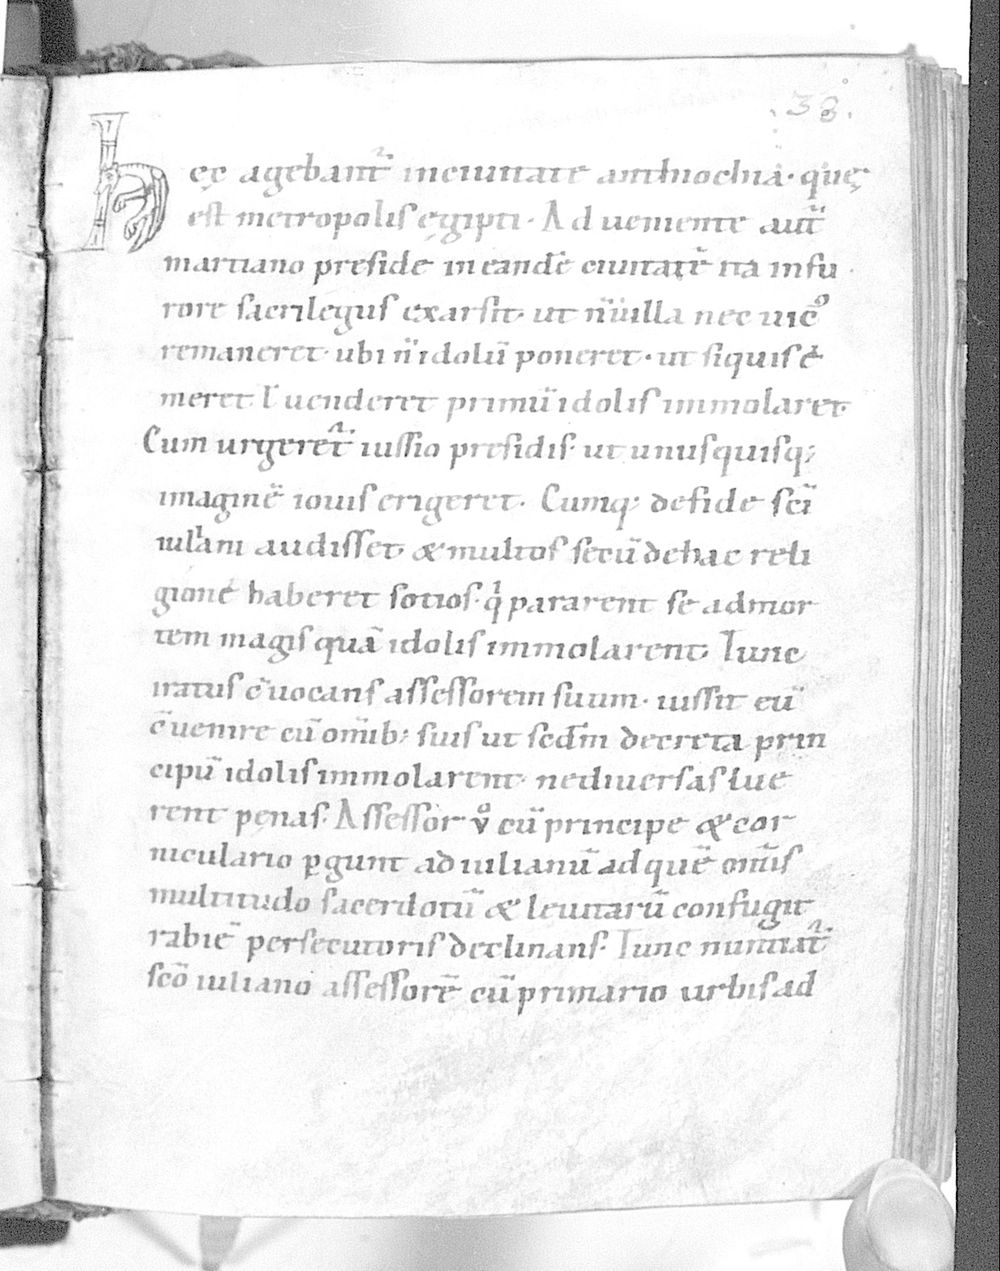 33.
Hęc agebant᷑ inciuitate anthiochia· quę
est metropolis ęgipti· Aduemente aut̄
martiano preside in eandē ciuitatē ita in fu
rore sacrilegus exarsit· ut n̄ uilla nec uicꝰ
remaneret· ubi n̄ idolū poneret· ut siquis e
meret ł uenderet primū idolis immolaret·
Cum urgeret᷑ iussio presidis· ut unusquisq;
imaginē iouis erigeret· Cumq; defide sc̄i
iuliani audisset· & multos secū dehac reli
gione haberet sotios· q̓ pararent se admor
tem magis quā idolis immolarent· Tunc
iratus c̄uocans assessorem suum· iussit eū
c̄uenire cū om̄ib; suis ut secdm̄ decreta prin
cipū idolis immolarent· nediuersas lue
rent pęnas· Assessor v̊ cū principe & cor
niculario ꝑgunt ad iulianū ad quē om̄is
multitudo sacerdotū & leuitarū confugit
rabiē persecutoris declinans· Tunc nuntiat᷑
sc̄o iuliano assessorē cū primario urbis ad